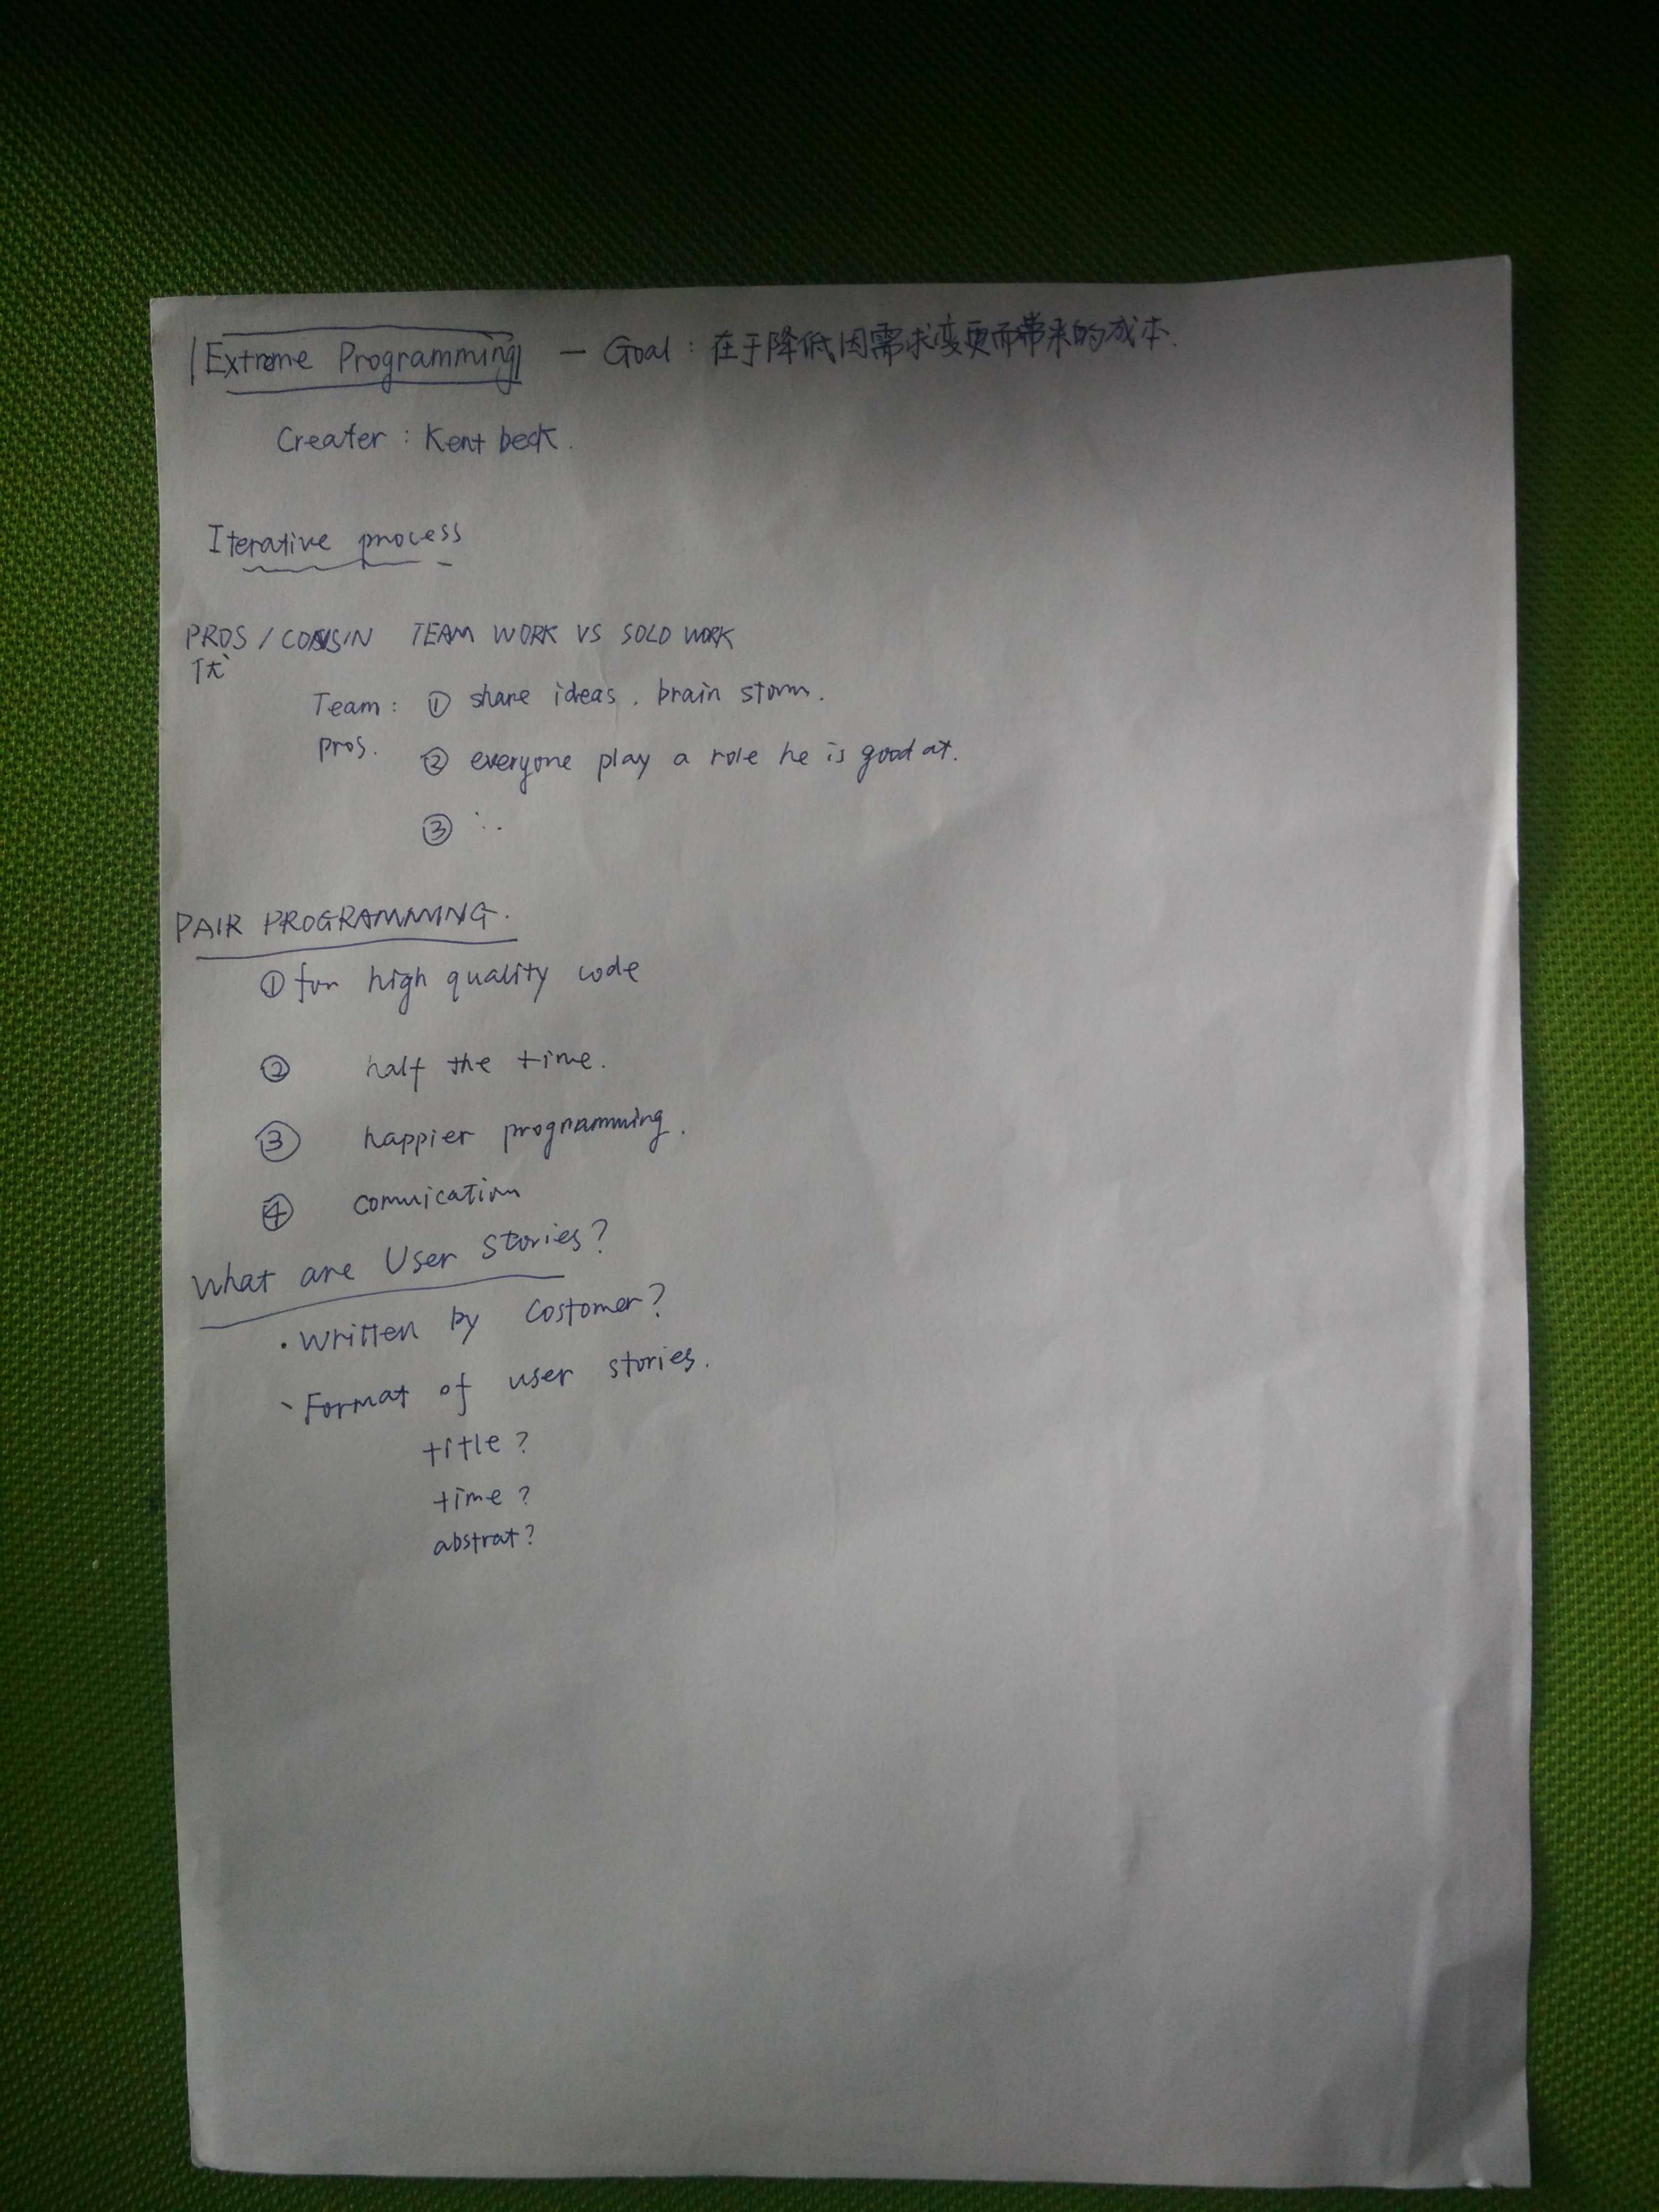 Extreme Programming — Goal: 在于降低因需求变更而带来的成本.
Creater: Kent beck.
Iterative process
PROS / CONSIN TEAM WORK VS SOLO WORK
优
Team: ① share ideas. brain storm.
pros. ② everyone play a role he is good at.
③ ∵
PAIR PROGRAMMING.
① for high quality code
② half the time.
③ happier programming.
④ comuication
What are User Stories?
· Written by Costomer?
· Format of user stories.
title?
time?
abstrat?